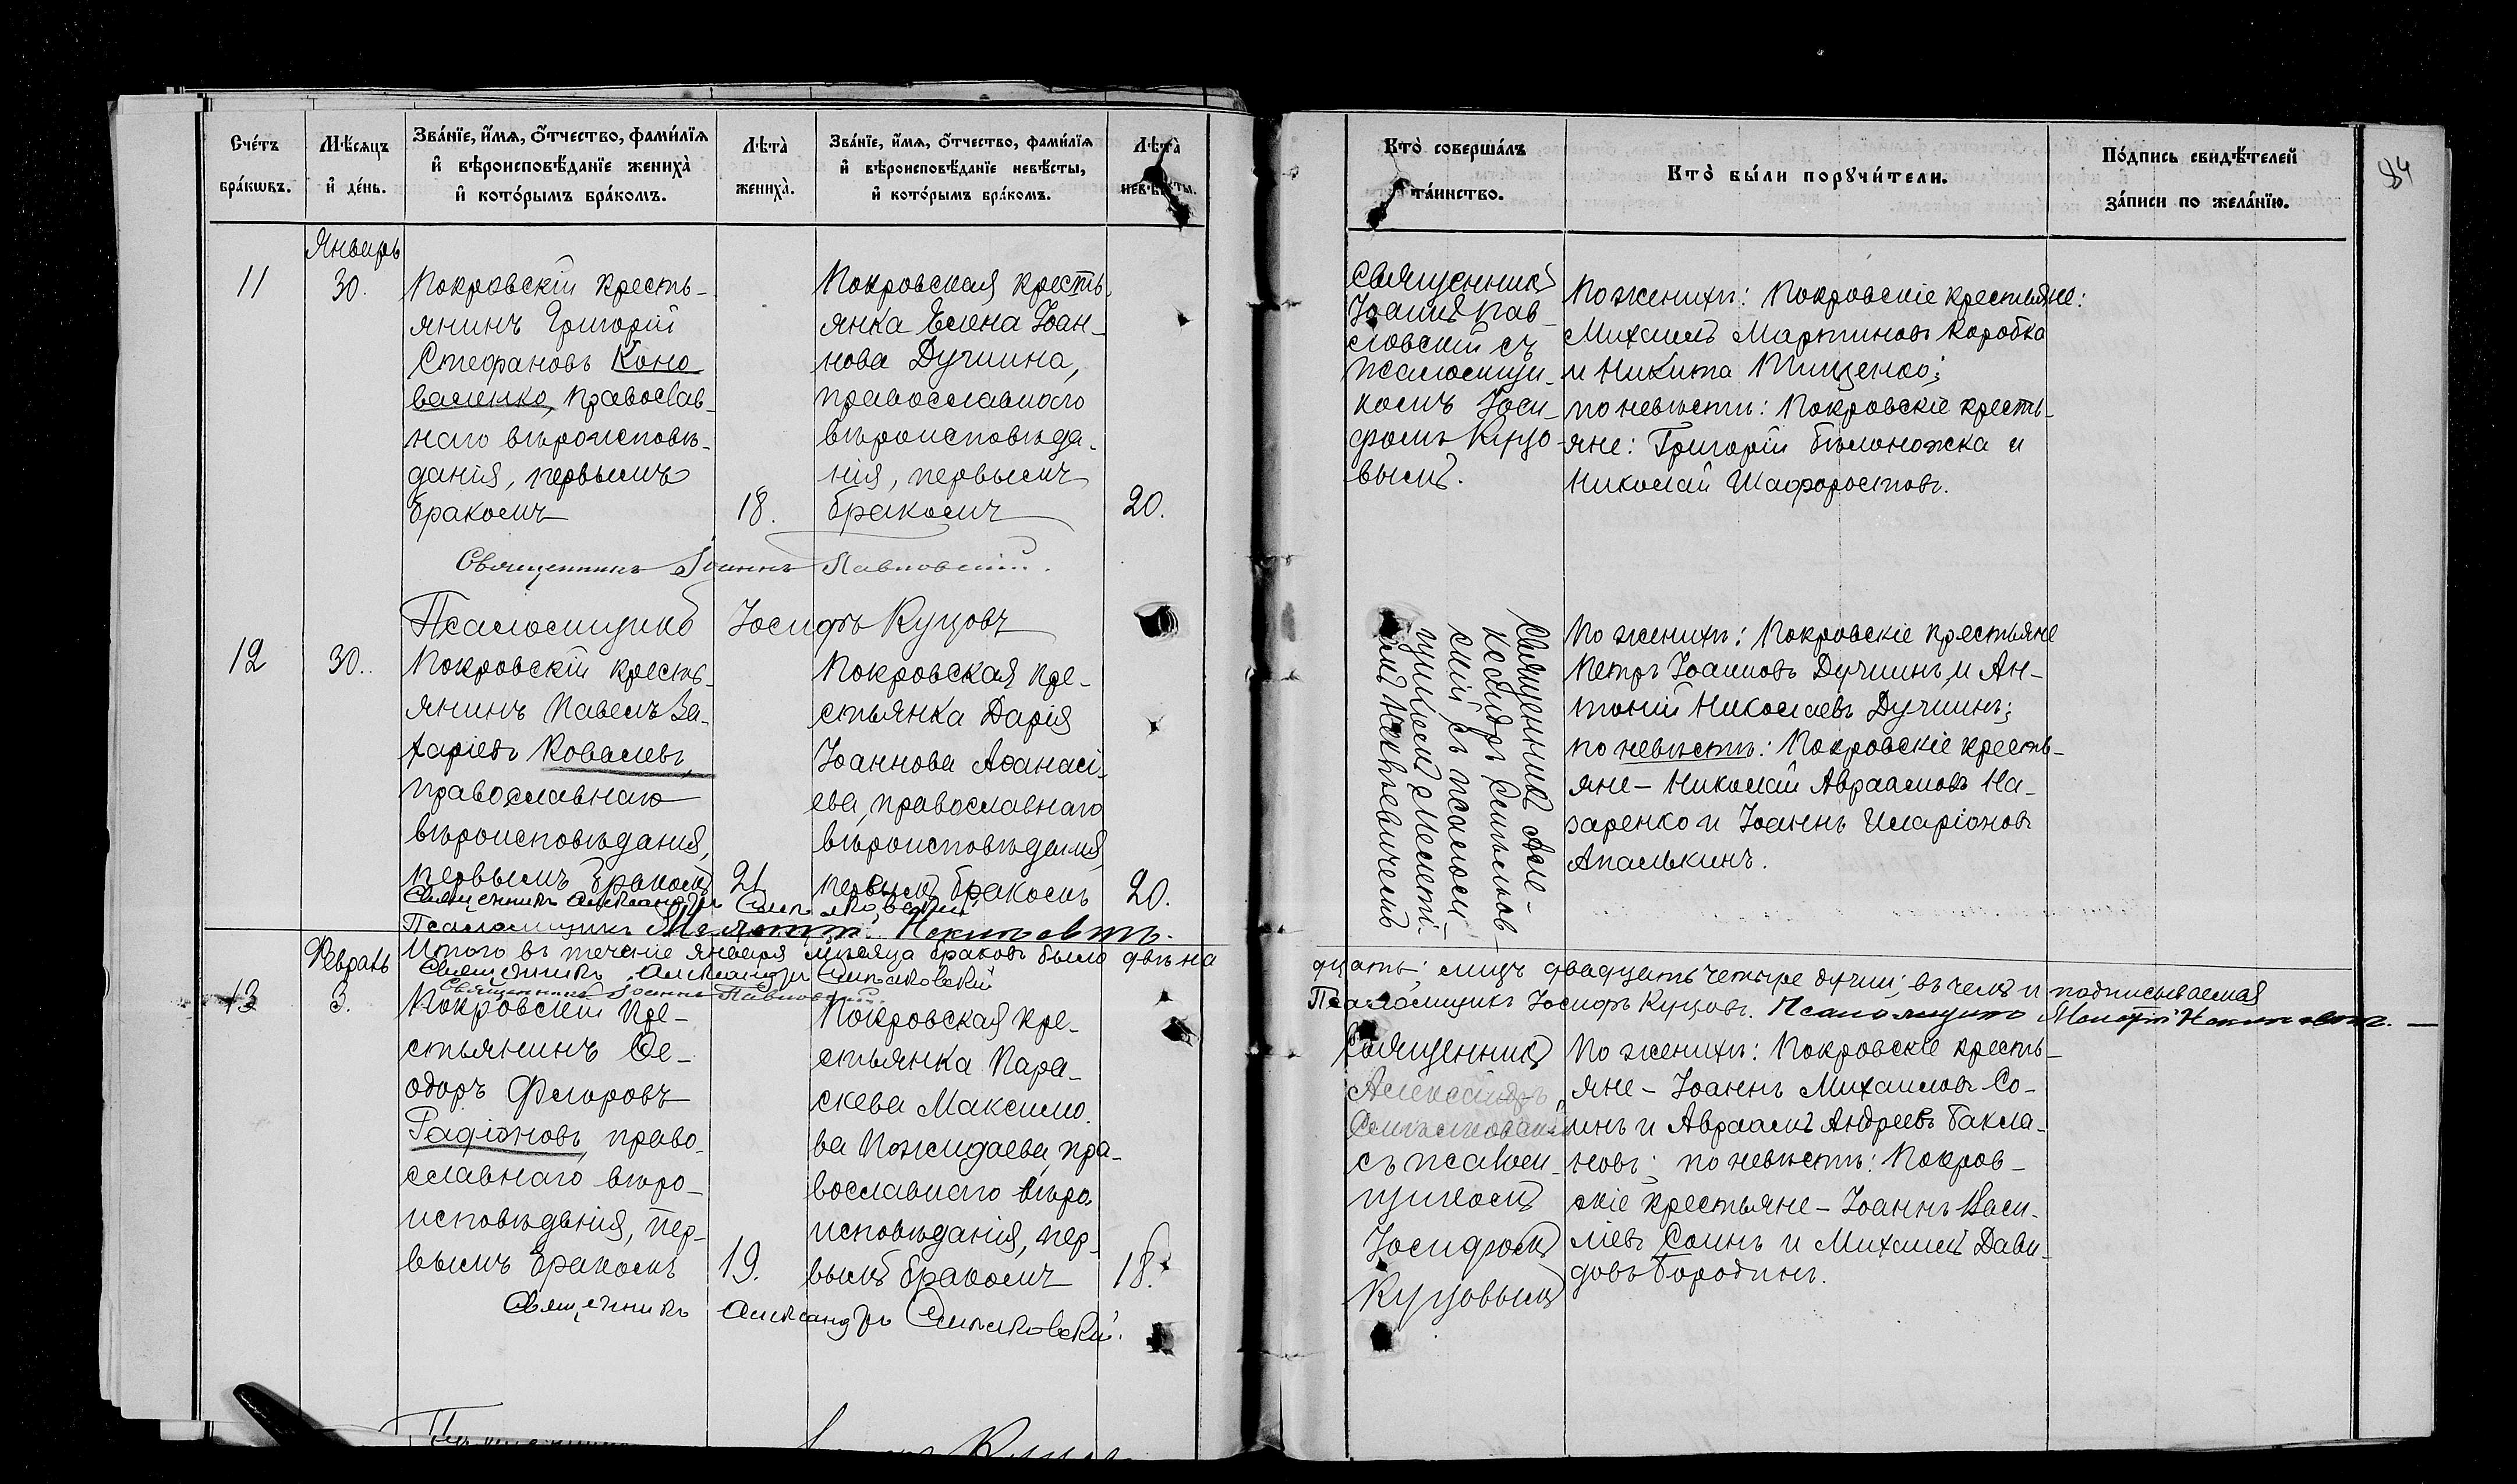 Сче́тъ бра́кωвъ.
Мѣ́сяцъ и҆ де́нь.
Зва́нїе, и҆́мѧ, ѻ҆́тчество, фами́лїѧ
и҆ вѣроисповѣ́данїе жениха̀
и҆ кото́рымъ бра́комъ.
Лѣ́та̀ жениха̀.
Зва́нїе, и҆́мѧ, ѻ҆́тчество, фами́лїѧ
и҆ вѣроисповѣ́данїе невѣ́сты,
и҆ кото́рымъ бра́комъ.
Лѣ́та̀ невѣ́сты.
Кто̀ соверша́лъ
та́инство.
Кто̀ бы́ли порꙋчи́тели.
По́дпись свидѣ́телей
за́писи по жела́нїю.
84
Январь
11
30.
Покровскій кресть-
янинъ Григорій
Стефановъ Коно
валенко, православ-
наго вѣроисповѣ-
данія, первымъ
бракомъ
18.
Покровская кресть
янка Елена Іоан-
нова Дучмина,
православнаго
вѣроисповѣда-
нія, первымъ
бракомъ
20.
Священникъ
Іоаннъ Пав-
ловскій съ
псаломщи-
комъ Іоси-
фомъ Куцо
вымъ.
По женихѣ: Покровскіе крестьяне:
Михаилъ Мартиновъ Коробка
и Никита Пищенко;
по невѣстѣ: Покровскіе кресть-
яне: Григорій Бѣлоножка и
Николай Шаforостовъ.
Священникъ Іоаннъ Павловскій.
Псаломщикъ Іосифъ Куцовъ
12
30.
Покровскій кресть-
янинъ Павелъ За-
харіевъ Ковалевъ,
православнаго
вѣроисповѣданія,
первымъ бракомъ
21
Покровская кре-
стьянка Дарія
Іоаннова Аѳанасі-
ева, православнаго
вѣроисповѣданія,
первымъ бракомъ
20.
Священникъ Але-
ксандръ
съ псалом
щикомъ
По женихѣ: Покровскіе крестьяне
Петръ Іоанновъ Дучминъ и Ан-
тоній Николаевъ Дучминъ;
по невѣстѣ: Покровскіе кресть-
яне - Николай Авраамовъ На-
заренко и Іоаннъ Иларіоновъ
Апалькинъ.
Священникъ Александръ
Псаломщикъ
Итого въ теченіе января мѣсяца браковъ было двѣна
дцать; лицъ двадцать четыре души; въ чемъ и подписываемся
Священникъ Александръ
Священникъ Іоаннъ Павловскій.
Псаломщикъ Іосифъ Куцовъ. Псаломщикъ
Февраль
13
3.
Покровскій кре-
стьянинъ Ѳе-
одоръ Флоровъ
Радіоновъ, право-
славнаго вѣро-
исповѣданія, пер-
вымъ бракомъ
19.
Покровская кре-
стьянка Пара-
скева Максимо-
ва Пожидаева, пра-
вославнаго вѣро
исповѣданія, пер-
вымъ бракомъ
18.
Священникъ
Александръ
съ псалом-
щикомъ
Іосифомъ
Куцовымъ
По женихѣ: Покровскіе кресть-
яне - Іоаннъ Михаиловъ Со-
инъ и Авраамъ Андреевъ Бакла-
новъ; по невѣстѣ: Покров-
скіе крестьяне - Іоаннъ Васи-
ліевъ Соинъ и Михаилъ Дави-
довъ Бородинъ.
Священникъ Александръ